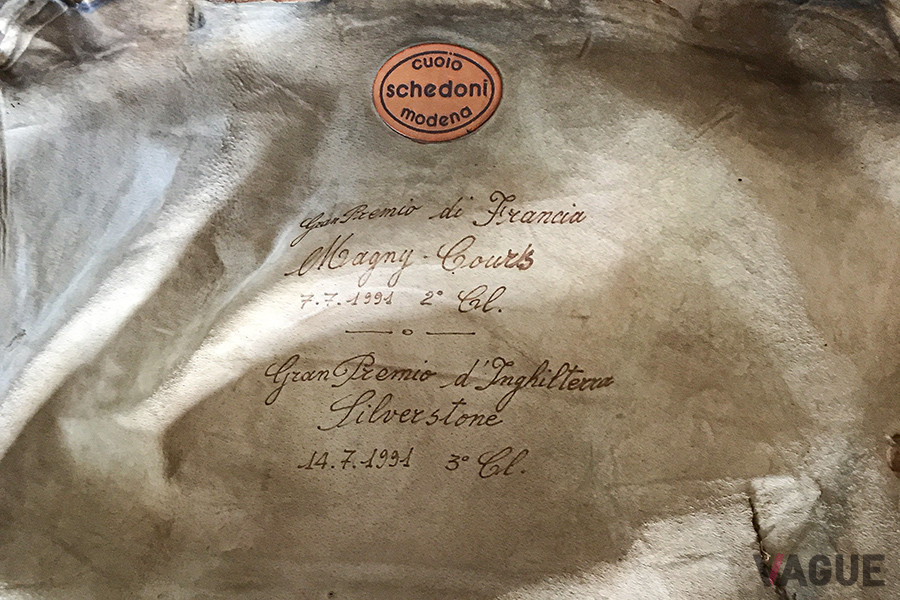 cuoio
schedoni
modena
Gran Premio di Francia
Magny-Cours
7.7.1991 2° Cl.
Gran Premio d'Inghilterra
Silverstone
14.7.1991 3° Cl.
VAGUE